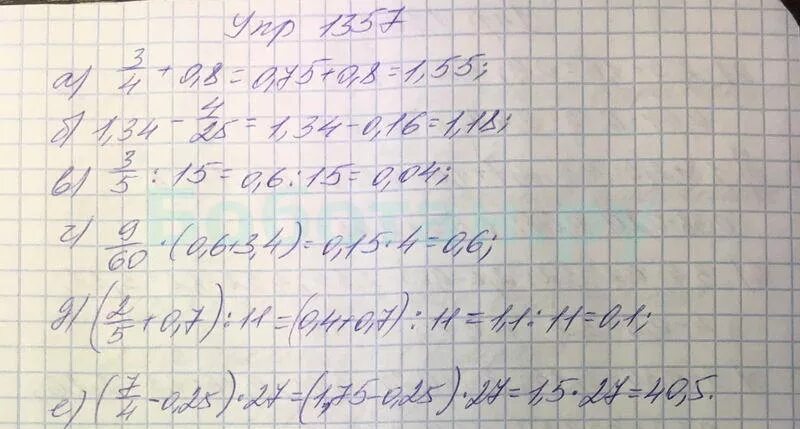 Упр 1357
а) 3/4 + 0,8 = 0,75 + 0,8 = 1,55;
б) 1,34 - 4/25 = 1,34 - 0,16 = 1,18;
в) 3/5 : 15 = 0,6 : 15 = 0,04;
г) 9/60 · (0,6 + 3,4) = 0,15 · 4 = 0,6;
д) (2/5 + 0,7) : 11 = (0,4 + 0,7) : 11 = 1,1 : 11 = 0,1;
е) (7/4 - 0,25) · 27 = (1,75 - 0,25) · 27 = 1,5 · 27 = 40,5.